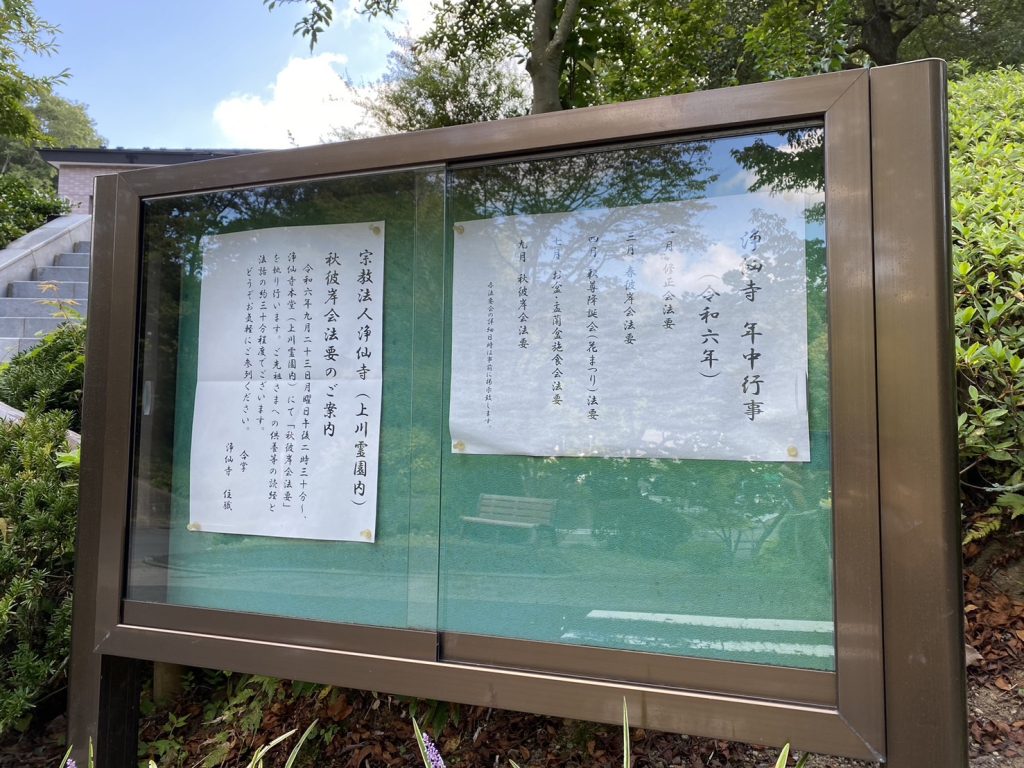 浄仙寺 年中行事
（令和六年）
一月 修正会法要
三月 春彼岸会法要
四月 釈尊降誕会（花まつり）法要
七月 お盆・盂蘭盆施食会法要
九月 秋彼岸会法要
各法要会の詳細日時は事前に掲示致します。
宗教法人浄仙寺（上川霊園内）
秋彼岸会法要のご案内
令和六年九月二十三日月曜日午後二時三十分～、
浄仙寺本堂（上川霊園内）にて「秋彼岸会法要」
を執り行います。ご先祖さまへの供養等の読経と
法話の約三十分程度でございます。
どうぞお気軽にご参列ください。
合掌
浄仙寺 住職